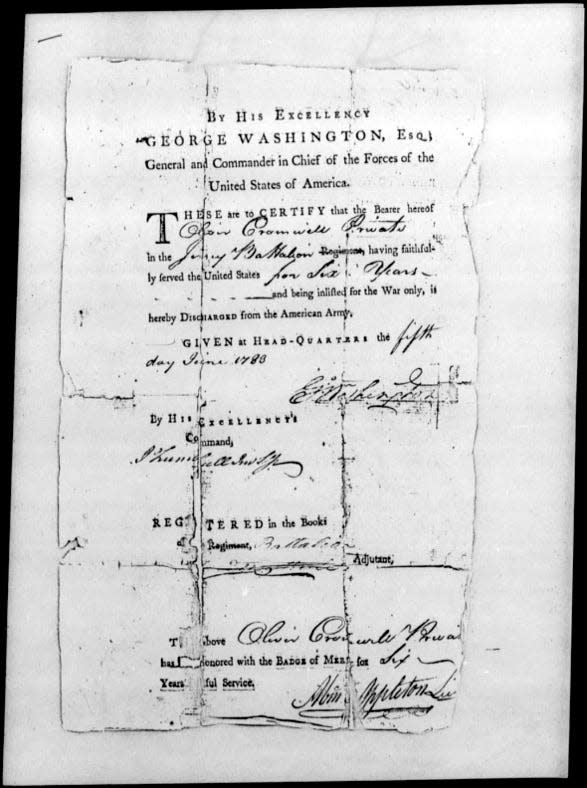 By His Excellency
GEORGE WASHINGTON, Esq;
General and Commander in Chief of the Forces of the
United States of America.
THESE are to CERTIFY that the Bearer hereof
Oliver Cromwell Private
in the Jersey Battalion Regiment, having faithful-
ly served the United States for Six Years
and being inlisted for the War only, is
hereby Discharged from the American Army.
GIVEN at Head-Quarters the fifth
day June 1783
G Washington
By His Excellency's
Command,
J Trumbull Jun Sy
REG TERED in the Books
of Regiment, Battalion
Adjutant,
T bove Oliver Cromwell Privat
has onored with the Badge of Mer for Six
Years ful Service.
Abm Appleton Lie